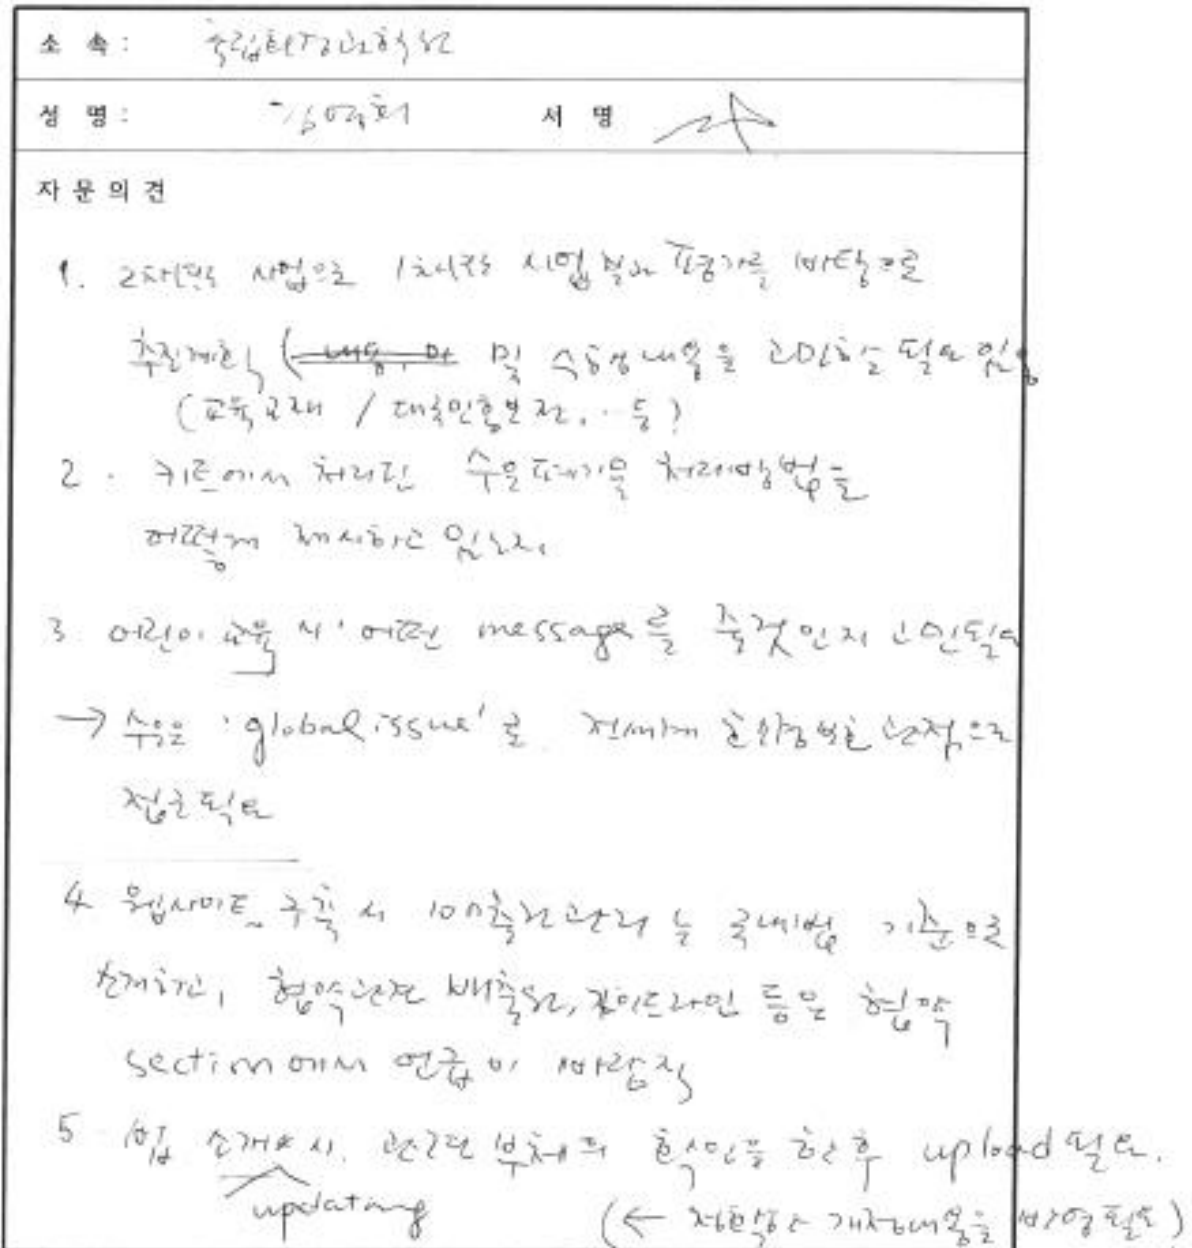 소 속 : 국립환경과학원
성 명 : 김영희 서 명
자 문 의 견
1. 2차년도 사업으로 1차년도 사업 평가를 바탕으로
추진계획 ( 및 수행내용을 고민할 필요 있음
(교육교재 / 대국민홍보전, ·· 등)
2. 키트에서 처리된 수은폐기물 처리방법을
어떻게 제시하고 있는지,
3 어린이 교육 시 어떤 message를 줄것인지 고민필요
→ 수은은 'global issue'로 전세계 관점으로
접근필요
4 웹사이트 구축 시 관리는 국내법 기준으로
소개하고, 협약관련 배출원, 가이드라인 등은 협약
section에서 언급이 바람직
5 법 소개 시, 관련 부처의 확인을 한 후 upload 필요.
updating
(← 정확한 개정내용을 반영 필요)